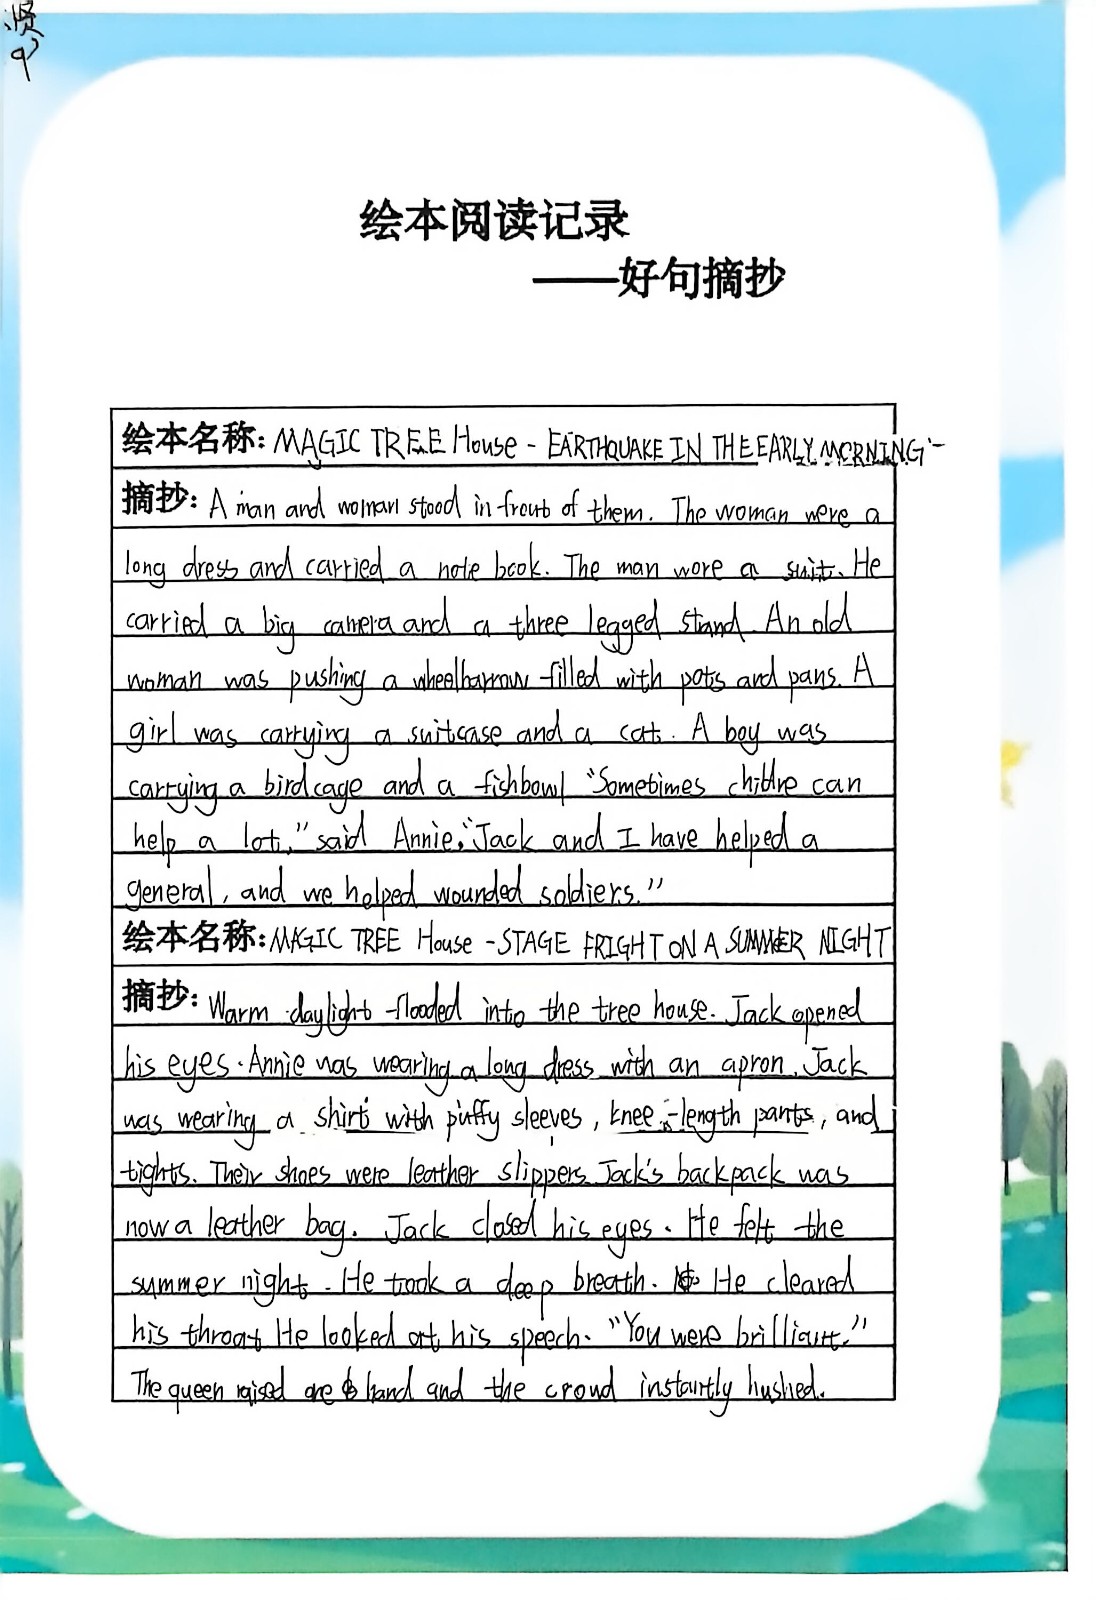 贤
9
绘本阅读记录
——好句摘抄
绘本名称: MAGIC TREE House - EARTHQUAKE IN THE EARLY MORNING -
摘抄: A man and woman stood in front of them. The woman were a
long dress and carried a note book. The man wore a suit. He
carried a big camera and a three legged stand. An old
woman was pushing a wheelbarrow filled with pots and pans. A
girl was carrying a suitcase and a cat. A boy was
carrying a birdcage and a fishbowl "Sometimes childre can
help a lot," said Annie, "Jack and I have helped a
general, and we helped wounded soldiers."
绘本名称: MAGIC TREE House - STAGE FRIGHT ON A SUMMER NIGHT
摘抄: Warm daylight flooded into the tree house. Jack opened
his eyes. Annie was wearing a long dress with an apron. Jack
was wearing a shirt with puffy sleeves, knee-length pants, and
tights. Their shoes were leather slippers. Jack's backpack was
now a leather bag. Jack closed his eyes. He felt the
summer night. He took a deep breath. He cleared
his throat He looked at his speech. "You were brilliant."
The queen raised one hand and the crowd instantly hushed.